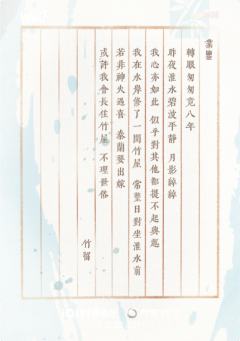 轉眼匆匆竟八年
昨夜淮水碧波平靜 月影綽綽
我心亦如此 似乎對其他都提不起興趣
我在水岸修了一間竹屋 常整日對坐淮水前
若非神火遇喜 泰蘭要出嫁
或許我會長住竹屋 不理世俗
竹留